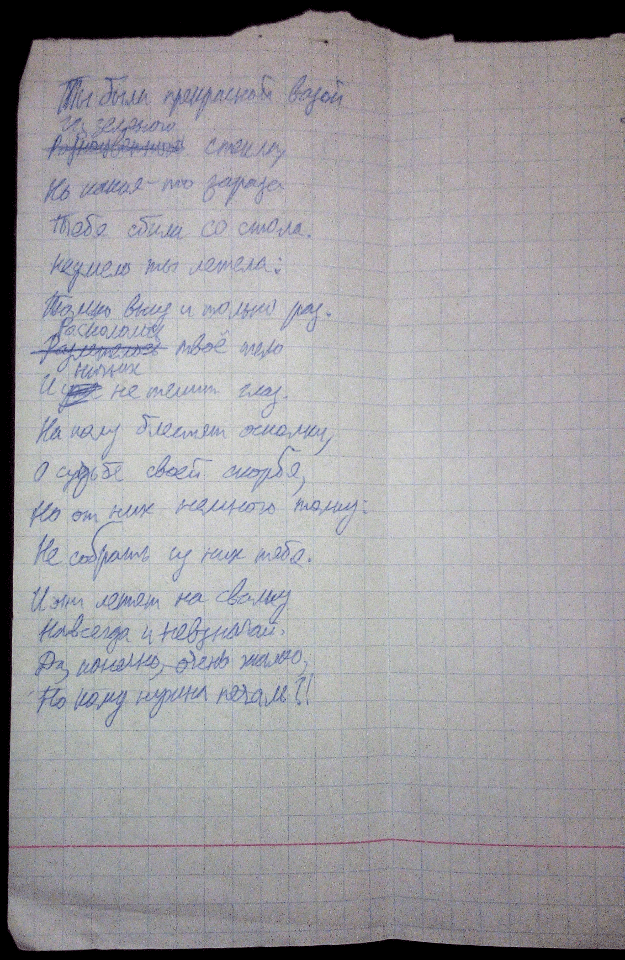 Ты была прекрасной вазой
Из зелёного
стекла,
Но какая-то зараза
Тебя сбила со стола.
Неумело ты летела:
Только вниз и только раз.
Раскололось
Разлетелось твоё тело
И не тешит глаз.
На полу блестят осколки,
О судьбе своей скорбя,
Но от них немного толку:
Не собрать из них тебя.
И они летят на свалку
Навсегда и невзначай.
Да, конечно, очень жалко,
Но кому нужна печаль?!